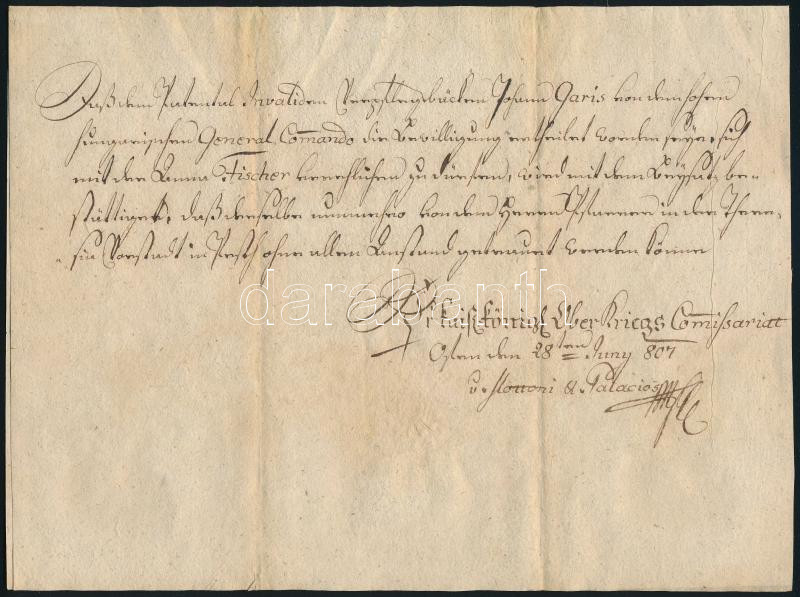 Daß dem Patental Invaliden Verpflegsbäcken Johann Garis von dem hohen
hungarischen General Comando die Bewilligung ertheilet worden seye, sich
mit der Anna Fischer verehlichen zu dürfen, wird mit dem Beysatz be-
stättiget, daß derselbe nunmehro von dem Herrn Pfarrer in der There-
sia Vorstadt in Pesth ohne allem Anstand getrauet werden könne
darabanth
Kaiß: Königl Ober Kriegs Comissariat
Ofen den 28ten Juny 807
Palacios